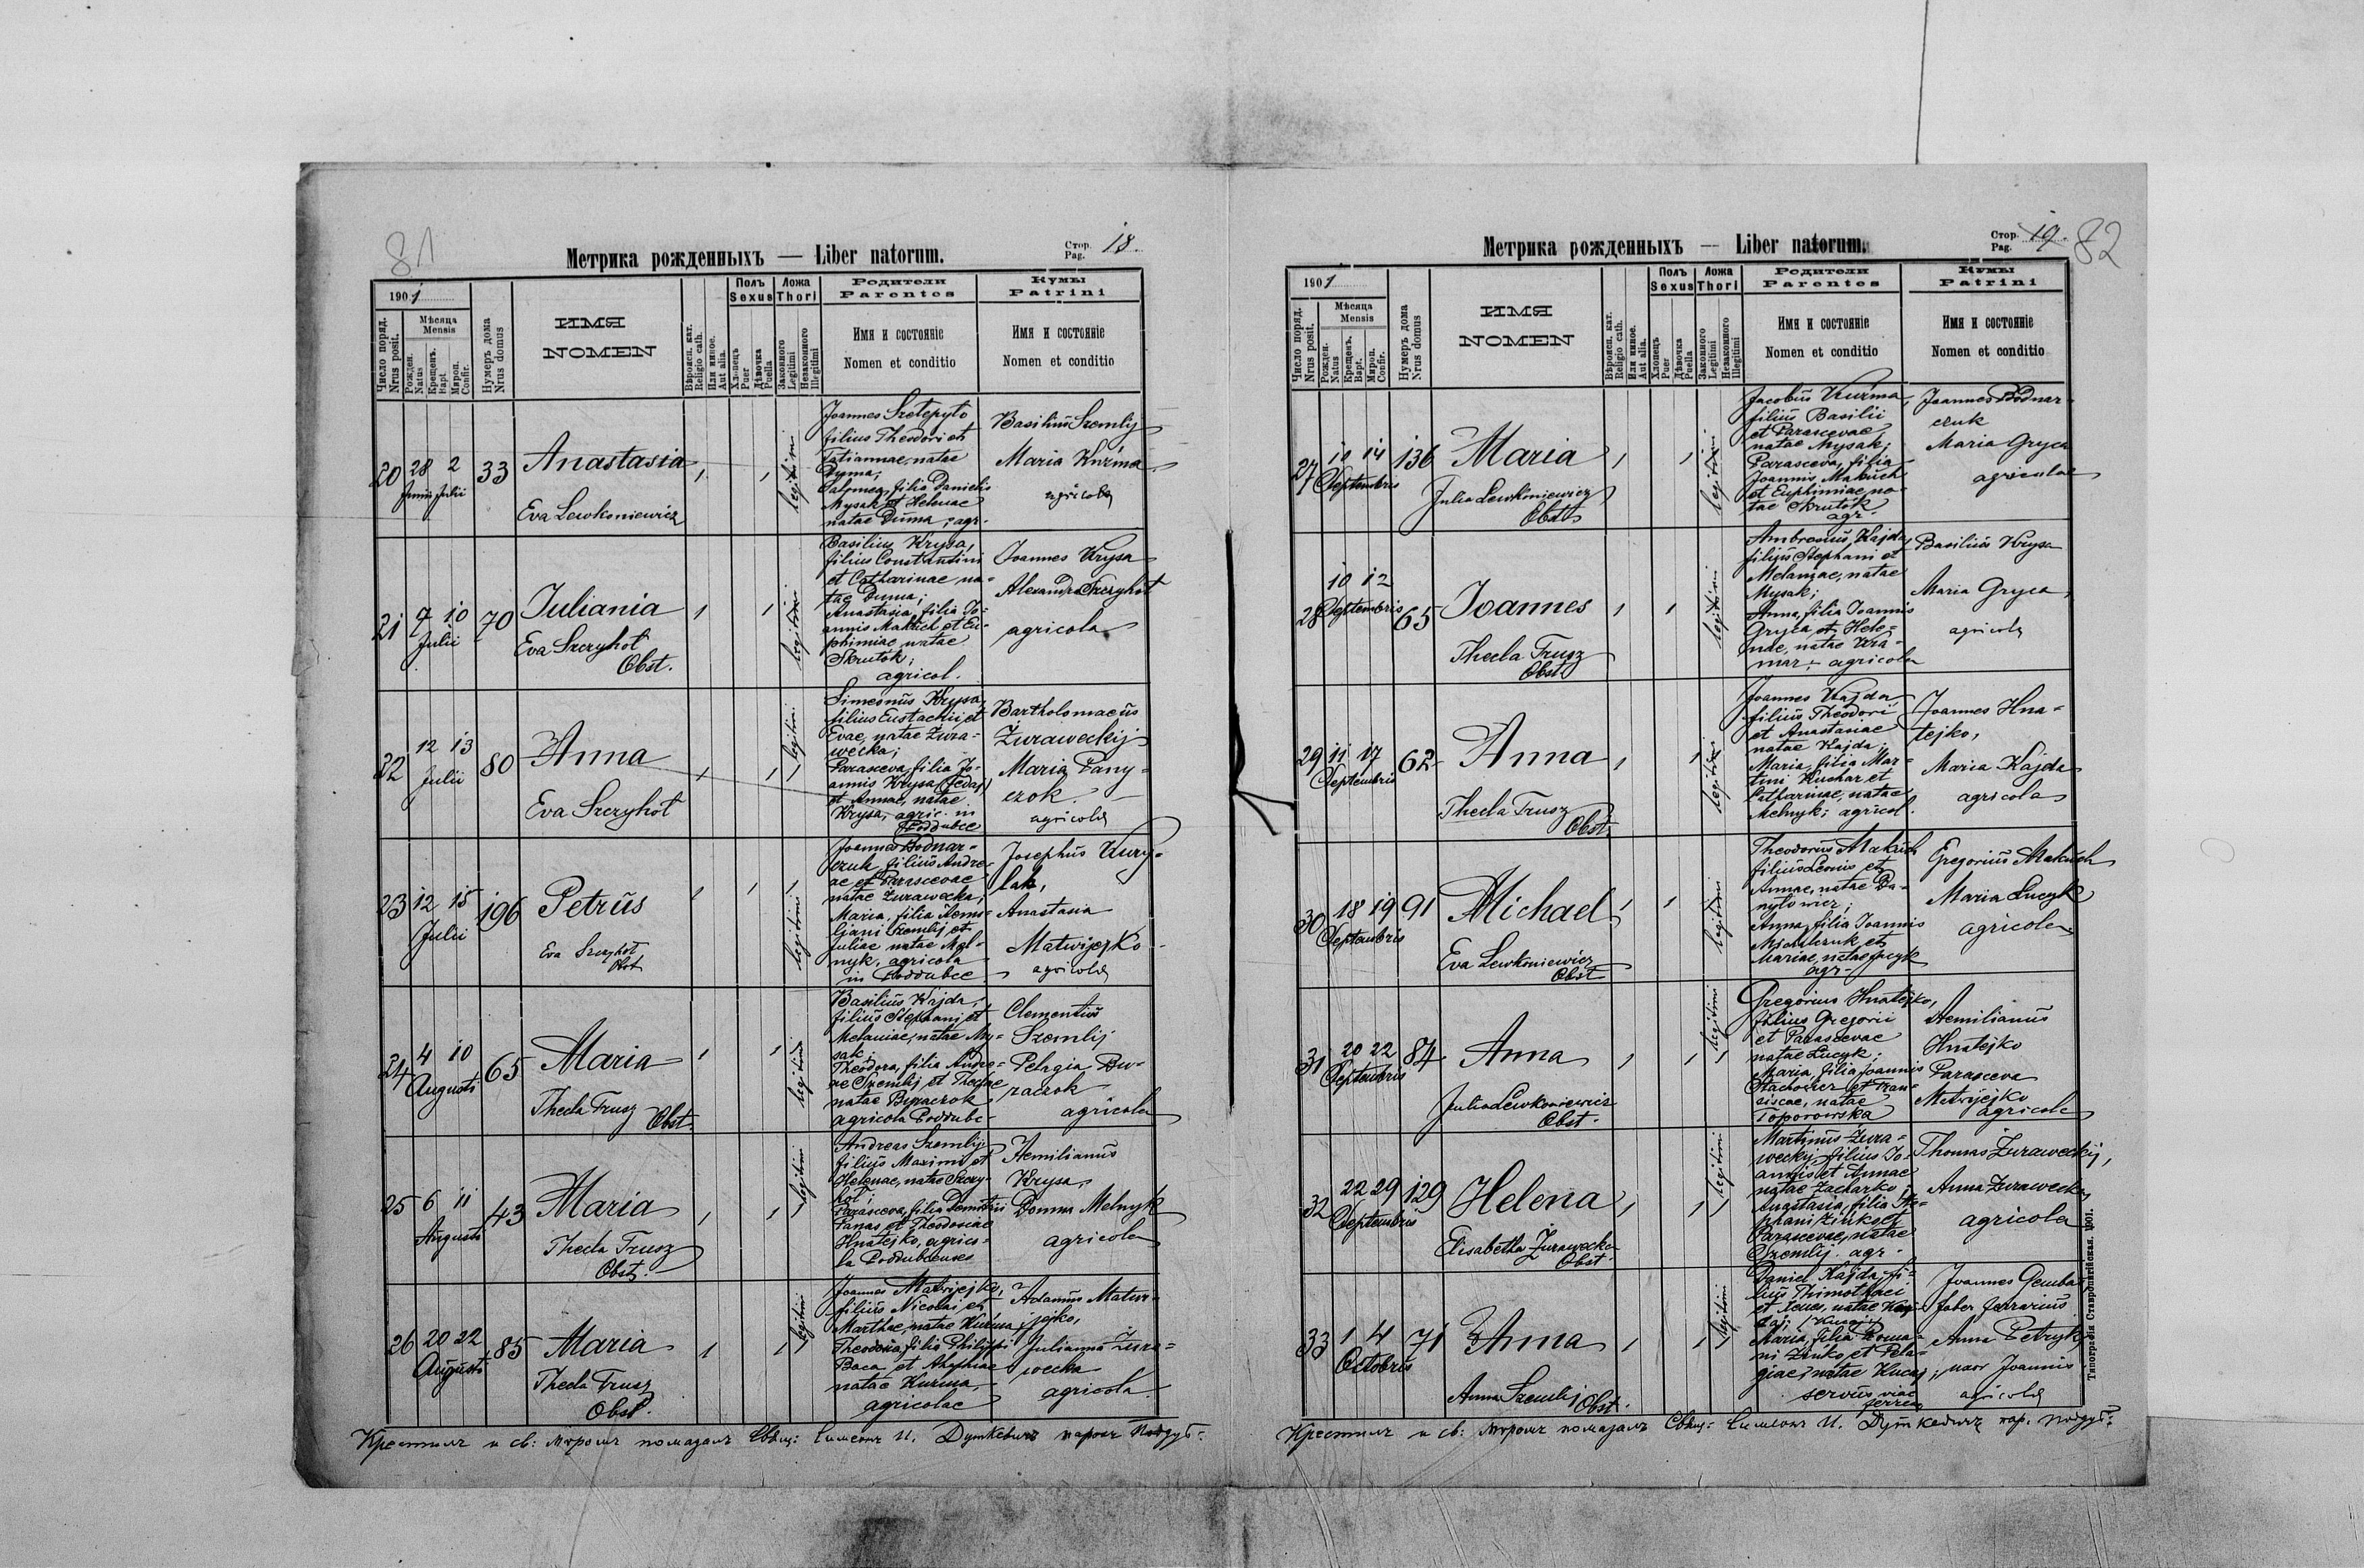 81
Метрика рожденныхъ — Liber natorum.
Стор. Pag. 18.
1901
Число поряд. Nrus posit.
Мѣсяца Mensis
Рожден. Natus
Крещенъ. Bapt.
Мироп. Confir.
Нумеръ дома Nrus domus
ИМЯ
NOMEN
Вѣроисп. кат. Religio cath.
Или иное. Aut alia.
Полъ Sexus
Хлопецъ Puer
Дѣвочка Puella
Ложа Thori
Законного Legitimi
Незаконного Illegitimi
Родители
Parentes
Имя и состояніе
Nomen et conditio
Кумы
Patrini
Имя и состояніе
Nomen et conditio
20 28 2 33 Anastasia
Junii Julii
Eva Lewkoniewicz
legitimi
Joannes Szetepyto
filius Theodori et
Tatiannae, natae
Duma;
Salomea, filia Danielis
Mysak et Helenae
natae Duma; agr.
Basiliŭs Szemlij
Maria Kuźma
agricolae
21 7 10 70 Iuliania
Julii
Eva Szczyhoł
Obst.
legitimi
Basilius Krysa,
filius Constantini
et Catharinae na-
tae Duma;
Anastasia, filia Jo-
annis Makŭch et Eu-
phimiae, natae
Skrutok;
agricol.
Joannes Krysa
Alexandra Szczyhoł
agricola
22 12 13 80 Anna
Julii
Eva Szczyhoł
legitimi
Simeonŭs Krysa,
filius Eustachii et
Evae, natae Żura-
wecka;
Parasceva, filia Jo-
annis Krysa (Fedaj)
et Annae, natae
Krysa, agric. in
Poddubce
Bartholomaeŭs
Żuraweckij
Maria Pany-
czok
agricolae
23 12 15 196 Petrŭs
Julii
Eva Szczyhoł
Obst
legitimi
Joannes Bodnar-
czuk, filiŭs Andre-
ae et Parascevae
natae Żurawecka;
Maria, filia Aemi-
liani Szemlij et
Juliae natae Mel-
nyk, agricola
in Poddubce
Josephŭs Kury-
lak,
Anastasia
Matwijejko
agricolae
24 4 10 65 Maria
Augusti
Thecla Trusz
Obst.
legitimi
Basiliŭs Kajda,
filiŭs Stephani et
Melaniae, natae My-
sak;
Theodora, filia Andre-
ae Szemlij et Theclae
natae Buraczok
agricola Poddubc-
Clementiŭs
Szemlij
Pelagia Bu-
raczok
agricola
25 6 11 43 Maria
Augusti
Thecla Trusz
Obst.
legitimi
Andreas Szemlij
filiŭs Maximi et
Helenae, natae Szczy-
hoł;
Parasceva, filia Demetrii
Panas et Theodosiae
Hnatejko, agrico-
la Poddubcenses
Aemilianŭs
Krysa,
Domna Melnyk
agricola
26 20 22 85 Maria
Augusti
Thecla Trusz
Obst.
legitimi
Joannes Matwijejko,
filiŭs Nicolai et
Marthae, natae Kuzma
Theodosia, filia Philippi
Baca et Ahaphiae
natae Kuzma,
agricolae
Adamŭs Matwi-
jejko,
Julianna Żura-
wecka
agricola
Крестилъ и св: мѵромъ помазалъ Свящ: Симеонъ И. Дуткевичъ парохъ Поддуб-
Метрика рожденныхъ — Liber natorum.
Стор. Pag. 19.
82
1901
Число поряд. Nrus posit.
Мѣсяца Mensis
Рожден. Natus
Крещенъ. Bapt.
Мироп. Confir.
Нумеръ дома Nrus domus
ИМЯ
NOMEN
Вѣроисп. кат. Religio cath.
Или иное. Aut alia.
Полъ Sexus
Хлопецъ Puer
Дѣвочка Puella
Ложа Thori
Законного Legitimi
Незаконного Illegitimi
Родители
Parentes
Имя и состояніе
Nomen et conditio
Кумы
Patrini
Имя и состояніе
Nomen et conditio
27 10 14 136 Maria
Septembris
Julia Lewkoniewicz
Obst.
legitimi
Jacobŭs Kuźma,
filiŭs Basilii
et Parascevae
natae Mysak;
Parasceva, filia
Joannis Makŭch
et Euphimiae na-
tae Skrutok
agr.
Joannes Bodnar-
czuk
Maria Gryca
agricolae
28 10 12 65 Ioannes
Septembris
Thecla Trusz
Obst.
legitimi
Ambrosiŭs Kajda,
filiŭs Stephani et
Melaniae, natae
Mysak;
Anna, filia Joannis
Gryca et Hele-
nae, natae Kra-
mar; agricola
Basiliŭs Krysa
Maria Gryca
agricolae
29 11 17 62 Anna
Septembris
Thecla Trusz
Obst.
legitimi
Joannes Kajda
filiŭs Theodori
et Anastasiae
natae Kajda;
Maria, filia Mar-
tini Kuchar et
Catharinae, natae
Melnyk; agricol.
Joannes Hna-
tejko,
Maria Kajda
agricola
30 18 19 91 Michael
Septembris
Eva Lewkoniewicz
Obst
legitimi
Theodorus Makŭch
filiŭs Leonis et
Annae, natae Da-
nylower;
Anna, filia Joannis
Michalczuk et
Mariae, natae Lucyk
agr-
Gregoriŭs Makŭch
Maria Lucyk
agricola
31 20 22 84 Anna
Septembris
Julia Lewkoniewicz
Obst.
legitimi
Gregorius Hnatejko,
filius Gregorii
et Parascevae
natae Lucyk;
Maria, filia Joannis
Stachowicz et Fran-
ciscae, natae
Toporowska
Aemilianŭs
Hnatejko
Parasceva
Matwijejko
agricola
32 22 29 129 Helena
Septembris
Elisabetha Żurawecka
Obst.
legitimi
Martinŭs Żura-
weckij, filius Jo-
annis et Annae
natae Zacharko;
Anastasia, filia Ste-
phani Zinko et
Parascevae, natae
Szemlij agr.
Thomas Żuraweckij,
Anna Żurawecka
agricola
33 1 4 71 Anna
Octobris
Anna Szemlij Obst.
legitimi
Daniel Kajda, fi-
lius Thimothaei
et Xenes, natae
Maria, filia Roma-
ni Zinko et Pela-
giae, natae Kucaj;
servŭs viae
ferreae
Joannes Gemba
faber ferrarius
Anna Petryk,
uxor Joannis
agricolae
Крестилъ и св: мѵромъ помазалъ Свящ: Симеонъ И. Дуткевичъ пар. Поддуб-
Типографія Ставропигійская. 1901.